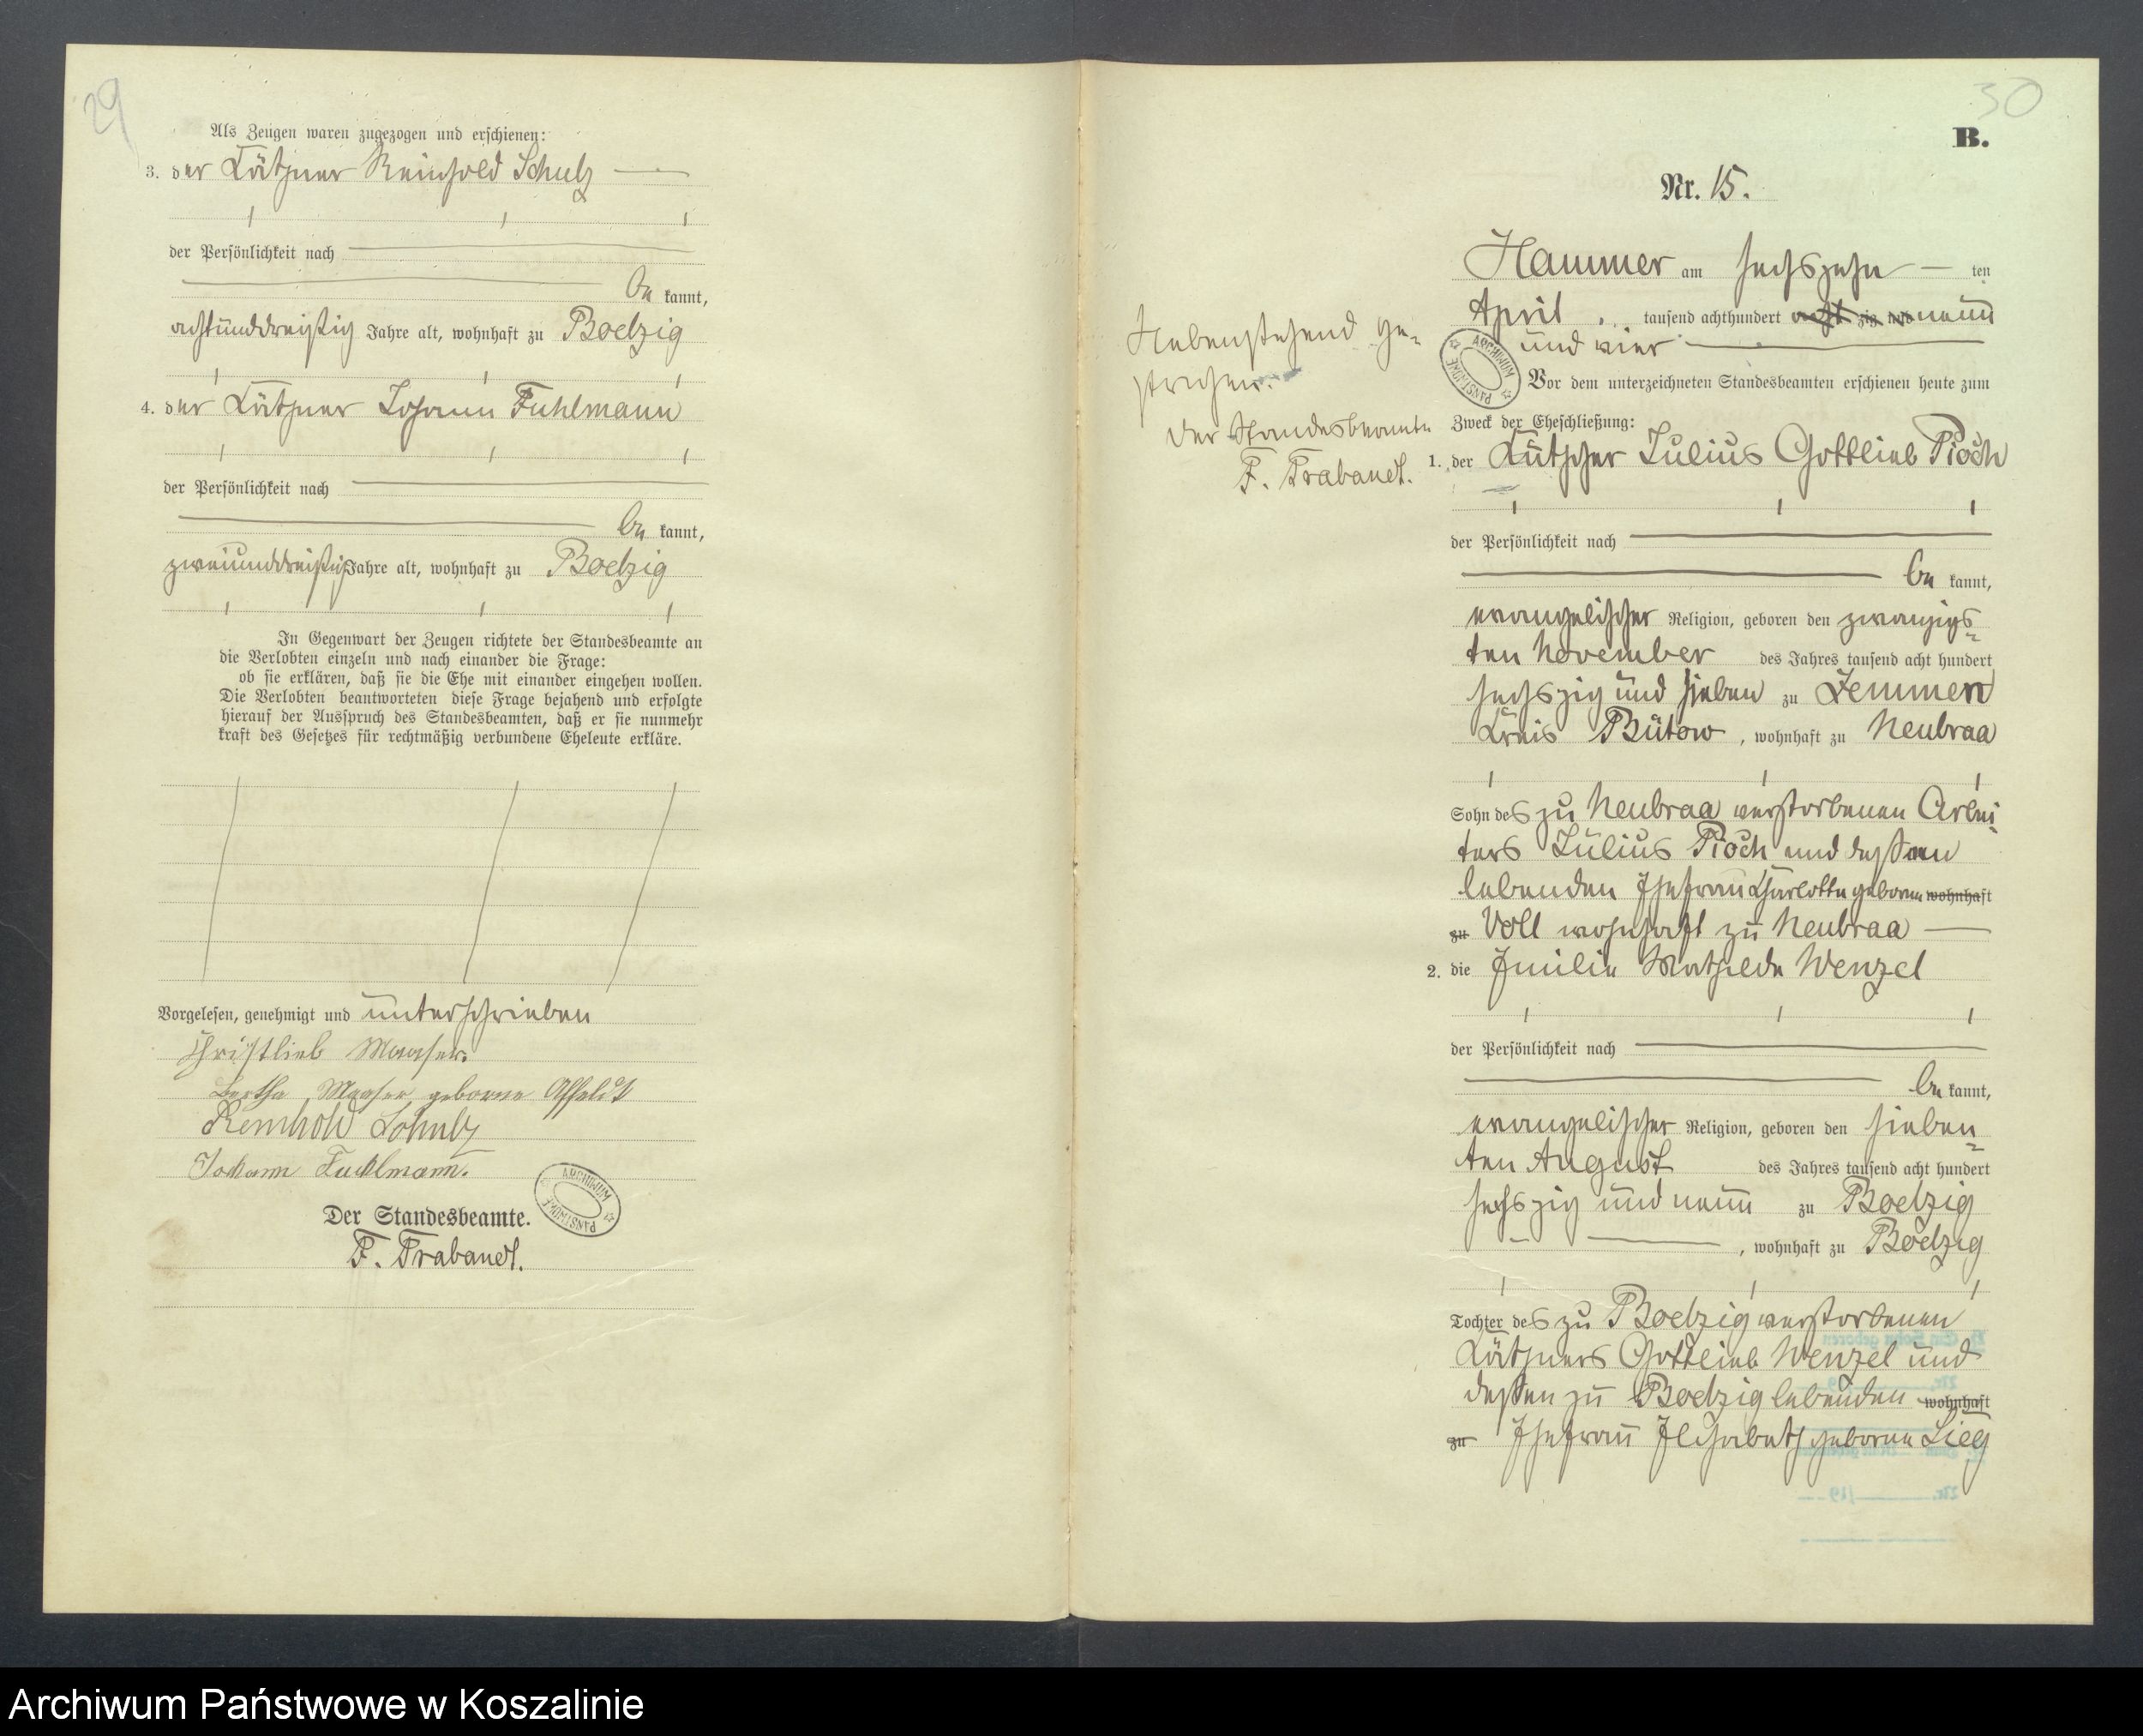 29
Als Zeugen waren zugezogen und erschienen:
3. der Käthner Reinhold Schulz
der Persönlichkeit nach
be kannt,
achtunddreißig Jahre alt, wohnhaft zu Boetzig
4. der Käthner Johann Fuhlmann
der Persönlichkeit nach
be kannt,
zweiunddreißig Jahre alt, wohnhaft zu Boetzig
In Gegenwart der Zeugen richtete der Standesbeamte an
die Verlobten einzeln und nach einander die Frage:
ob sie erklären, daß sie die Ehe mit einander eingehen wollen.
Die Verlobten beantworteten diese Frage bejahend und erfolgte
hierauf der Ausspruch des Standesbeamten, daß er sie nunmehr
kraft des Gesetzes für rechtmäßig verbundene Eheleute erkläre.
Vorgelesen, genehmigt und unterschrieben
Christlieb Maaser.
Bertha Maaser geborne Affeldt
Reinhold Schulz
Johann Fuhlmann.
ARCHIWUM PAŃSTWOWE
Der Standesbeamte.
F. Trabandt.
30
B.
Nr. 15.
Hammer am sechszehn ten
April tausend achthundert acht zig und neun
und vier
ARCHIWUM PAŃSTWOWE
Nebenstehend ge-
strichen.
Der Standesbeamte
F. Trabandt.
Vor dem unterzeichneten Standesbeamten erschienen heute zum
Zweck der Eheschließung:
1. der Kutscher Julius Gottlieb Pioch
der Persönlichkeit nach
be kannt,
evangelischer Religion, geboren den zwanzigs-
ten November des Jahres tausend acht hundert
sechszig und sieben zu Zemmen
Kreis Bütow, wohnhaft zu Neubraa
Sohn des zu Neubraa verstorbenen Arbei-
ters Julius Pioch und dessen
lebenden Ehefrau Charlotte geborne wohnhaft
zu Voll wohnhaft zu Neubraa
2. die Emilie Mathilde Wenzel
der Persönlichkeit nach
be kannt,
evangelischer Religion, geboren den sieben-
ten August des Jahres tausend acht hundert
sechszig und neun zu Boetzig
, wohnhaft zu Boetzig
Tochter des zu Boetzig verstorbenen
Käthners Gottlieb Wenzel und
dessen zu Boetzig lebenden wohnhaft
zu Ehefrau Elisabeth geborne Lieg
Archiwum Państwowe w Koszalinie